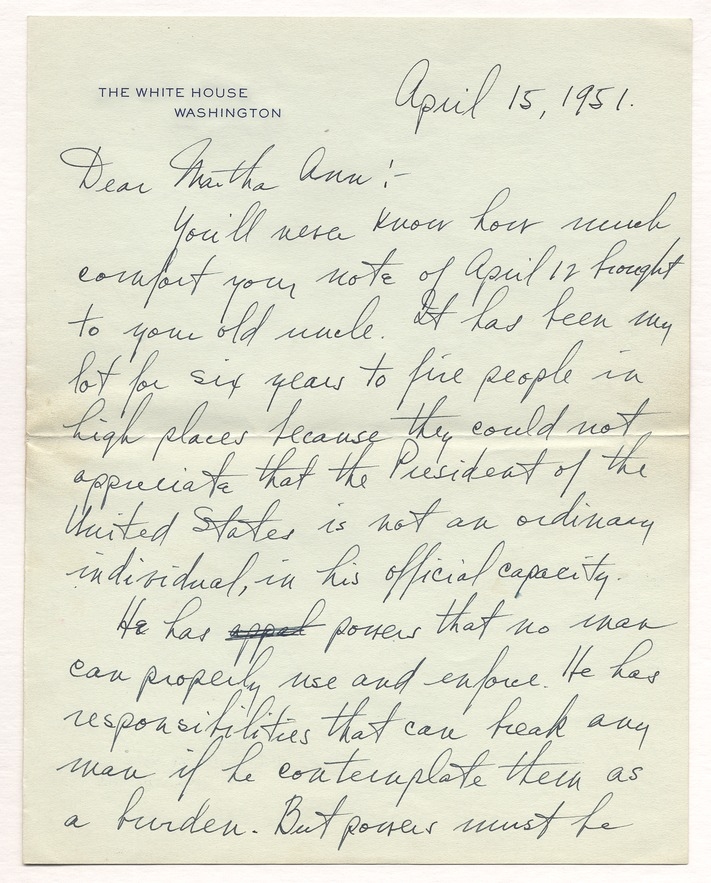 THE WHITE HOUSE
WASHINGTON
April 15, 1951.
Dear Martha Ann:-
You'll never know how much
comfort your note of April 12 brought
to your old uncle. It has been my
lot for six years to fire people in
high places because they could not
appreciate that the President of the
United States is not an ordinary
individual, in his official capacity.
He has appal powers that no man
can properly use and enforce. He has
responsibilities that can break any
man if he contemplate them as
a burden. But powers must be